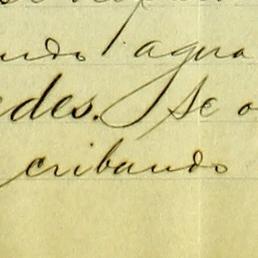 ando agua
edes. Se o
cribando